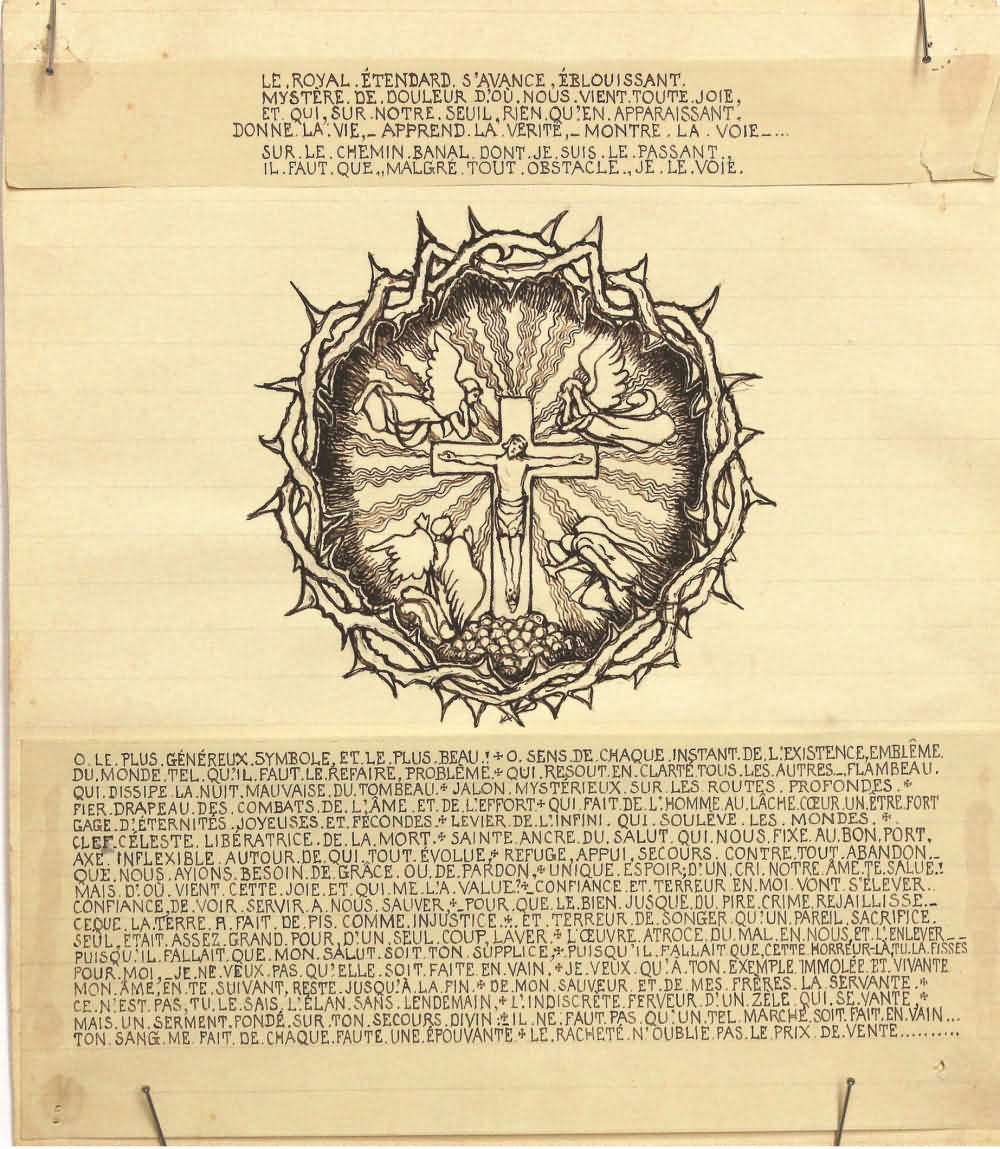 LE.ROYAL.ÉTENDARD.S'AVANCE,ÉBLOUISSANT.
MYSTÈRE.DE.DOULEUR.D'OÙ.NOUS.VIENT.TOUTE.JOIE,
ET.QUI,SUR.NOTRE.SEUIL,RIEN.QU'EN.APPARAISSANT.
DONNE.LA.VIE,_APPREND.LA.VÉRITÉ,_MONTRE.LA.VOIE_...
SUR.LE.CHEMIN.BANAL.DONT.JE.SUIS.LE.PASSANT..
IL.FAUT.QUE.,MALGRÉ.TOUT.OBSTACLE.,JE.LE.VOIE.
O.LE.PLUS.GÉNÉREUX.SYMBOLE,ET.LE.PLUS.BEAU!+O.SENS.DE.CHAQUE.INSTANT.DE.L'EXISTENCE,EMBLÊME.
DU.MONDE.TEL.QU'IL.FAUT.LE.REFAIRE,PROBLÊME.+QUI.RESOUT.EN.CLARTÉ.TOUS.LES.AUTRES._FLAMBEAU.
QUI.DISSIPE.LA.NUIT.MAUVAISE.DU.TOMBEAU+JALON.MYSTÉRIEUX.SUR.LES.ROUTES.PROFONDES.+
FIER.DRAPEAU.DES.COMBATS.DE.L'ÂME.ET.DE.L'EFFORT+QUI.FAIT.DE.L'HOMME.AU.LÂCHE.CŒUR.UN.ÊTRE.FORT
GAGE.D'ÉTERNITÉS.JOYEUSES.ET.FÉCONDES.+LEVIER.DE.L'INFINI.QUI.SOULÈVE.LES.MONDES.+.
CLEF.CÉLESTE.LIBÉRATRICE.DE.LA.MORT.+SAINTE.ANCRE.DU.SALUT.QUI.NOUS.FIXE.AU.BON.PORT,
AXE.INFLEXIBLE.AUTOUR.DE.QUI.TOUT.ÉVOLUE,+REFUGE,APPUI,SECOURS.CONTRE.TOUT.ABANDON._
QUE.NOUS.AYIONS.BESOIN.DE.GRÂCE.OU.DE.PARDON,+UNIQUE.ESPOIR;D'UN.CRI.NOTRE.ÂME.TE.SALUE!
MAIS.D'OÙ.VIENT.CETTE.JOIE.ET.QUI.ME.L'A.VALUE?+_CONFIANCE.ET.TERREUR.EN.MOI.VONT.S'ÉLEVER..
CONFIANCE,DE.VOIR.SERVIR.A.NOUS.SAUVER,+POUR.QUE.LE.BIEN.JUSQUE.DU.PIRE.CRIME.REJAILLISSE._
CE.QUE.LA.TERRE.A.FAIT.DE.PIS.COMME.INJUSTICE.+.ET.TERREUR.DE.SONGER.QU'UN.PAREIL.SACRIFICE.
SEUL.ETAIT.ASSEZ.GRAND.POUR,D'UN.SEUL.COUP,LAVER.+L'ŒUVRE.ATROCE.DU.MAL.EN.NOUS,ET.L'ENLEVER__
PUISQU'IL.FALLAIT.QUE.MON.SALUT.SOIT.TON.SUPPLICE,+PUISQU'IL.FALLAIT.QUE,CETTE.HORREUR-LÀ,TU.LA.FISSES
POUR.MOI,_JE.NE.VEUX.PAS.QU'ELLE.SOIT.FAITE.EN.VAIN.+JE.VEUX.QU'À.TON.EXEMPLE.IMMOLÉE.ET.VIVANTE
MON.ÂME,EN.TE.SUIVANT,RESTE.JUSQU'À.LA.FIN.+DE.MON.SAUVEUR.ET.DE.MES.FRÈRES.LA.SERVANTE.+
CE.N'EST.PAS,TU.LE.SAIS,L'ÉLAN.SANS.LENDEMAIN.+L'INDISCRÈTE.FERVEUR.D'UN.ZÈLE.QUI.SE.VANTE,+
MAIS.UN.SERMENT.FONDÉ.SUR.TON.SECOURS.DIVIN.+IL.NE.FAUT.PAS.QU'UN.TEL.MARCHÉ.SOIT.FAIT.EN.VAIN...
TON.SANG.ME.FAIT.DE.CHAQUE.FAUTE.UNE.ÉPOUVANTE+LE.RACHETÉ.N'OUBLIE.PAS.LE.PRIX.DE.VENTE.........